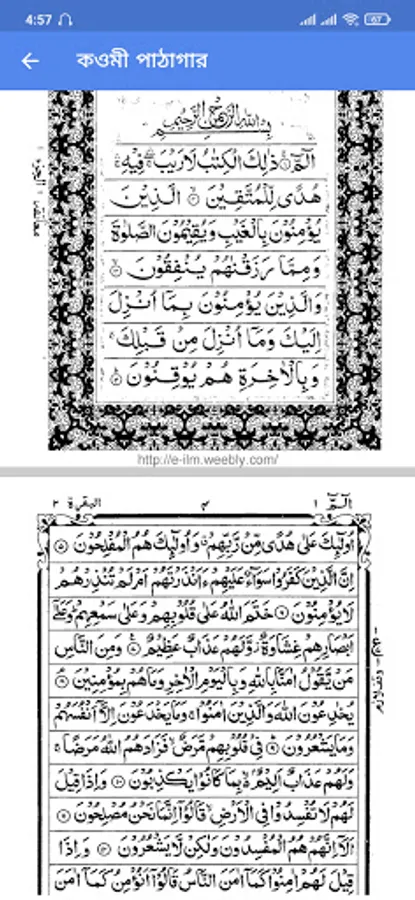 4:57
67
কওমী পাঠাগার
بِسْمِ اللهِ الرَّحْمٰنِ الرَّحِيْمِ
الٓمّٓ ۚ ذٰلِكَ الْكِتٰبُ لَا رَيْبَ ۛ فِيْهِ ۛ
هُدًى لِّلْمُتَّقِيْنَ ۙ الَّذِيْنَ
يُؤْمِنُوْنَ بِالْغَيْبِ وَيُقِيْمُوْنَ الصَّلٰوةَ
وَمِمَّا رَزَقْنٰهُمْ يُنْفِقُوْنَ ۙ
وَالَّذِيْنَ يُؤْمِنُوْنَ بِمَآ اُنْزِلَ
اِلَيْكَ وَمَآ اُنْزِلَ مِنْ قَبْلِكَ ۚ
وَبِالْاٰخِرَةِ هُمْ يُوْقِنُوْنَ ؕ
http://e-ilm.weebly.com/
الٓمّٓ ١
٢
البقرة ٢
اُولٰٓئِكَ عَلٰى هُدًى مِّنْ رَّبِّهِمْ ۗ وَاُولٰٓئِكَ هُمُ الْمُفْلِحُوْنَ ۝٥
اِنَّ الَّذِيْنَ كَفَرُوْا سَوَآءٌ عَلَيْهِمْ ءَاَنْذَرْتَهُمْ اَمْ لَمْ تُنْذِرْهُمْ
لَا يُؤْمِنُوْنَ ۝٦ خَتَمَ اللهُ عَلٰى قُلُوْبِهِمْ وَعَلٰى سَمْعِهِمْ ؕ وَعَلٰٓى
اَبْصَارِهِمْ غِشَاوَةٌ ۫ وَّلَهُمْ عَذَابٌ عَظِيْمٌ ۝٧ وَمِنَ النَّاسِ
مَنْ يَّقُوْلُ اٰمَنَّا بِاللهِ وَبِالْيَوْمِ الْاٰخِرِ وَمَا هُمْ بِمُؤْمِنِيْنَ ۝٨
يُخٰدِعُوْنَ اللهَ وَالَّذِيْنَ اٰمَنُوْا ۚ وَمَا يَخْدَعُوْنَ اِلَّآ اَنْفُسَهُمْ
وَمَا يَشْعُرُوْنَ ۝٩ فِيْ قُلُوْبِهِمْ مَّرَضٌ ۙ فَزَادَهُمُ اللهُ مَرَضًا ۚ
وَلَهُمْ عَذَابٌ اَلِيْمٌ ۢ ۙ بِمَا كَانُوْا يَكْذِبُوْنَ ۝١٠ وَاِذَا قِيْلَ
لَهُمْ لَا تُفْسِدُوْا فِي الْاَرْضِ ۙ قَالُوْٓا اِنَّمَا نَحْنُ مُصْلِحُوْنَ ۝١١
اَلَآ اِنَّهُمْ هُمُ الْمُفْسِدُوْنَ وَلٰكِنْ لَّا يَشْعُرُوْنَ ۝١٢ وَاِذَا
قِيْلَ لَهُمْ اٰمِنُوْا كَمَآ اٰمَنَ النَّاسُ قَالُوْٓا اَنُؤْمِنُ كَمَآ اٰمَنَ